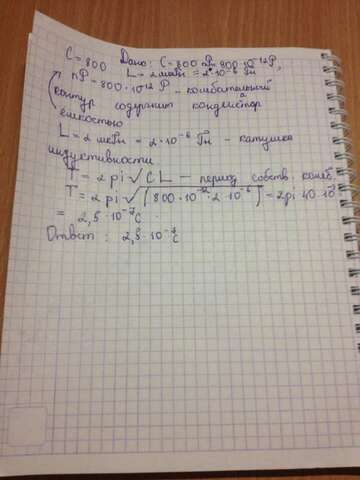 C = 800 Дано: C = 800 пР = 800 · 10⁻¹² Р,
L = 2 мкГн = 2 · 10⁻⁶ Гн
пР = 800 · 10¹² Р – колебательной
контур содержит кондестор
ёмкостью
L = 2 мкГн = 2 · 10⁻⁶ Гн – катушка
индуктивности
T = 2 pi √ CL – период собств. колеб.
T = 2 pi √ (800 · 10⁻¹² · 2 · 10⁻⁶) = 2pi 40 · 10
= 2,5 · 10⁻⁷ с
Ответ: 2,5 · 10⁻⁷ с